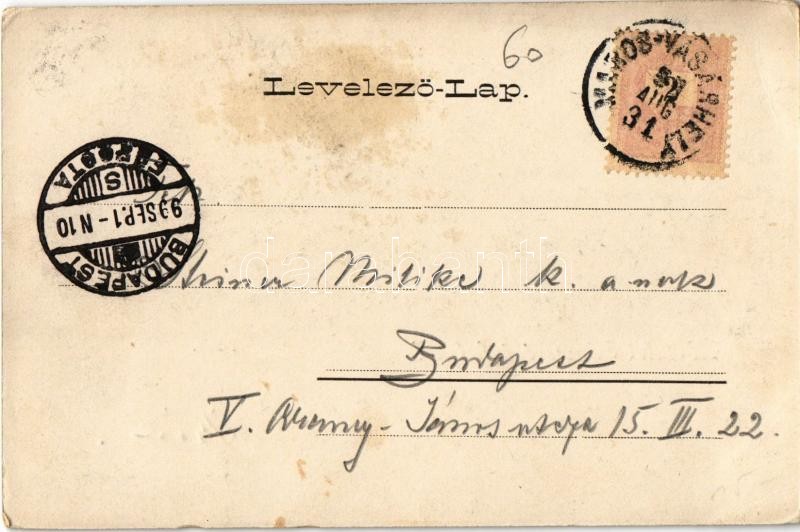 60
Levelező-Lap.
MAROS-VÁSÁRHELY
99
AUG
31
BUDAPEST
99 SEP.1 - N 10
S
FŐPOSTA
Milike k. a nak
Budapest
V. Arany-János utcza 15. III. 22.
darabanth